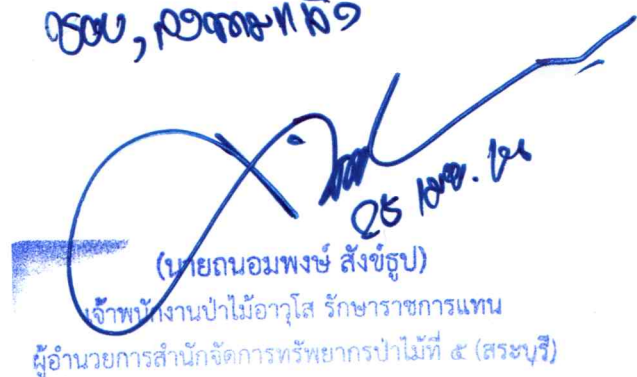 ชอบ, ลงนามแล้ว
25 เม.ย.
(นายถนอมพงษ์ สังข์ธูป)
เจ้าพนักงานป่าไม้อาวุโส รักษาราชการแทน
ผู้อำนวยการสำนักจัดการทรัพยากรป่าไม้ที่ ๕ (สระบุรี)